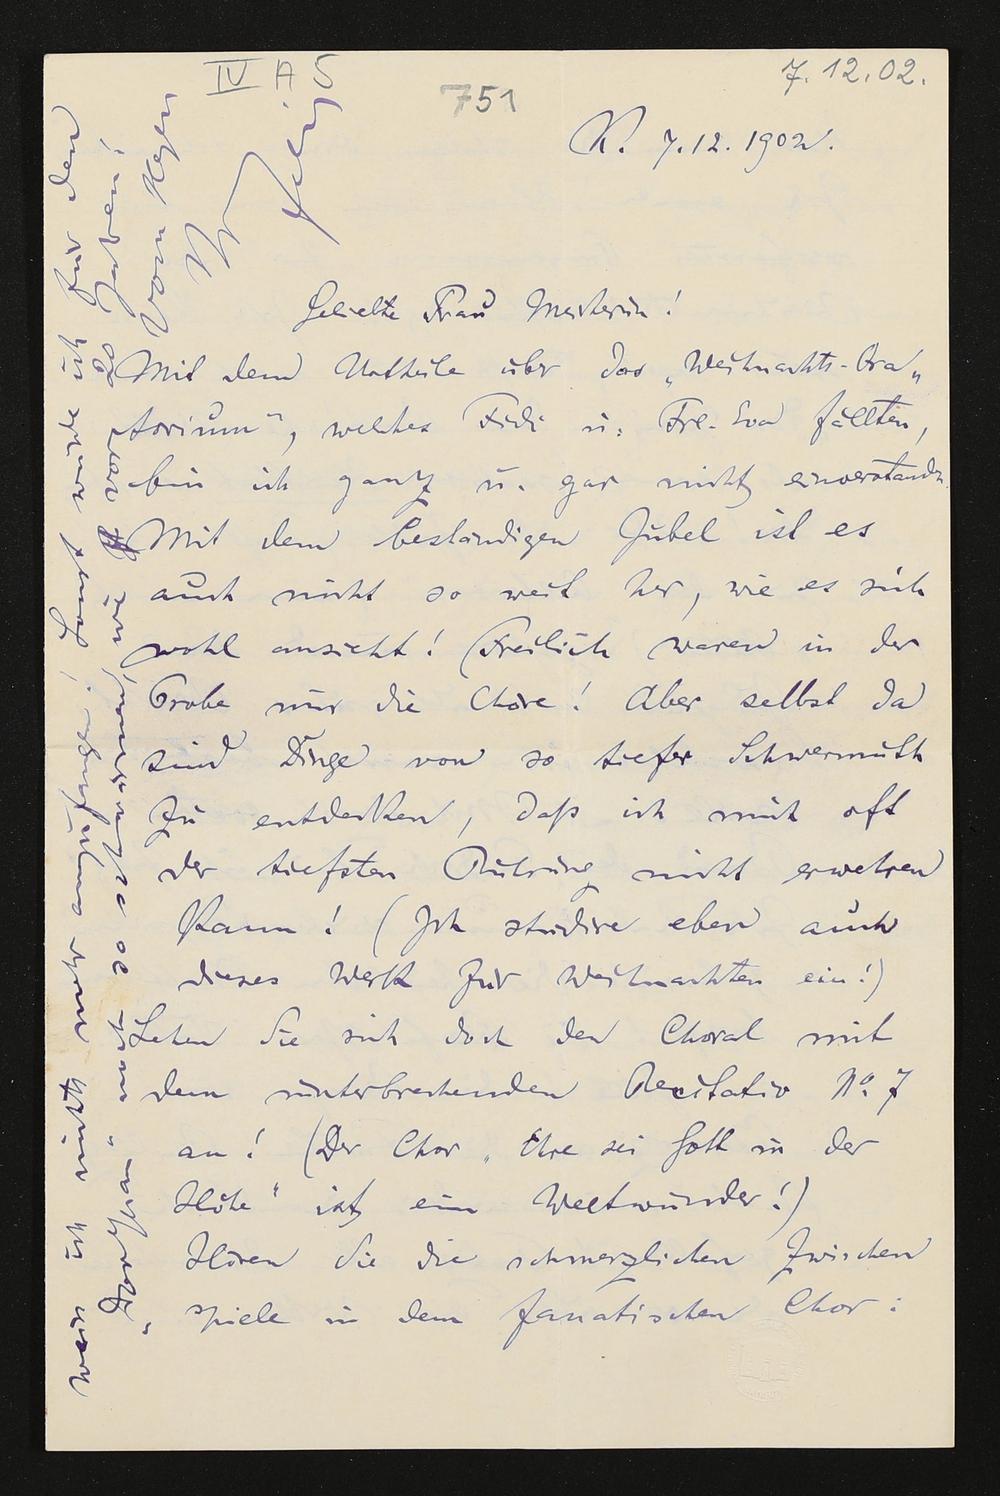 IV A 5
751
7.12.02.
K. 7.12.1902.
Geliebte Frau Meisterin!
Mit dem Urtheile über das „Weihnachts-Ora„
torium“, welches Fidi u. Frl. Eva fällten,
bin ich ganz u. gar nicht einverstanden.
Mit dem beständigen Jubel ist es
auch nicht so weit her, wie es sich
wohl ansieht! (Freilich waren in der
Probe nur die Chöre! Aber selbst da
sind Dinge von so tiefer Schwermuth
zu entdecken, daß ich mich oft
der tiefsten Rührung nicht erwehren
kann! (Ich studire eben auch
dieses Werk für Weihnachten ein!)
Sehen Sie sich doch den Choral mit
dem unterbrechenden Recitativ No. 7
an! (Der Chor „Ehre sei Gott in der
Höhe“ ist ein Weltwunder!)
Hören Sie die schmerzlichen Zwischen
spiele in dem fanatischen Chor:
weiss ich nichts mehr anzufangen! Sonst würde ich für den
„ noch so wie er war
haben!
Von Herzen